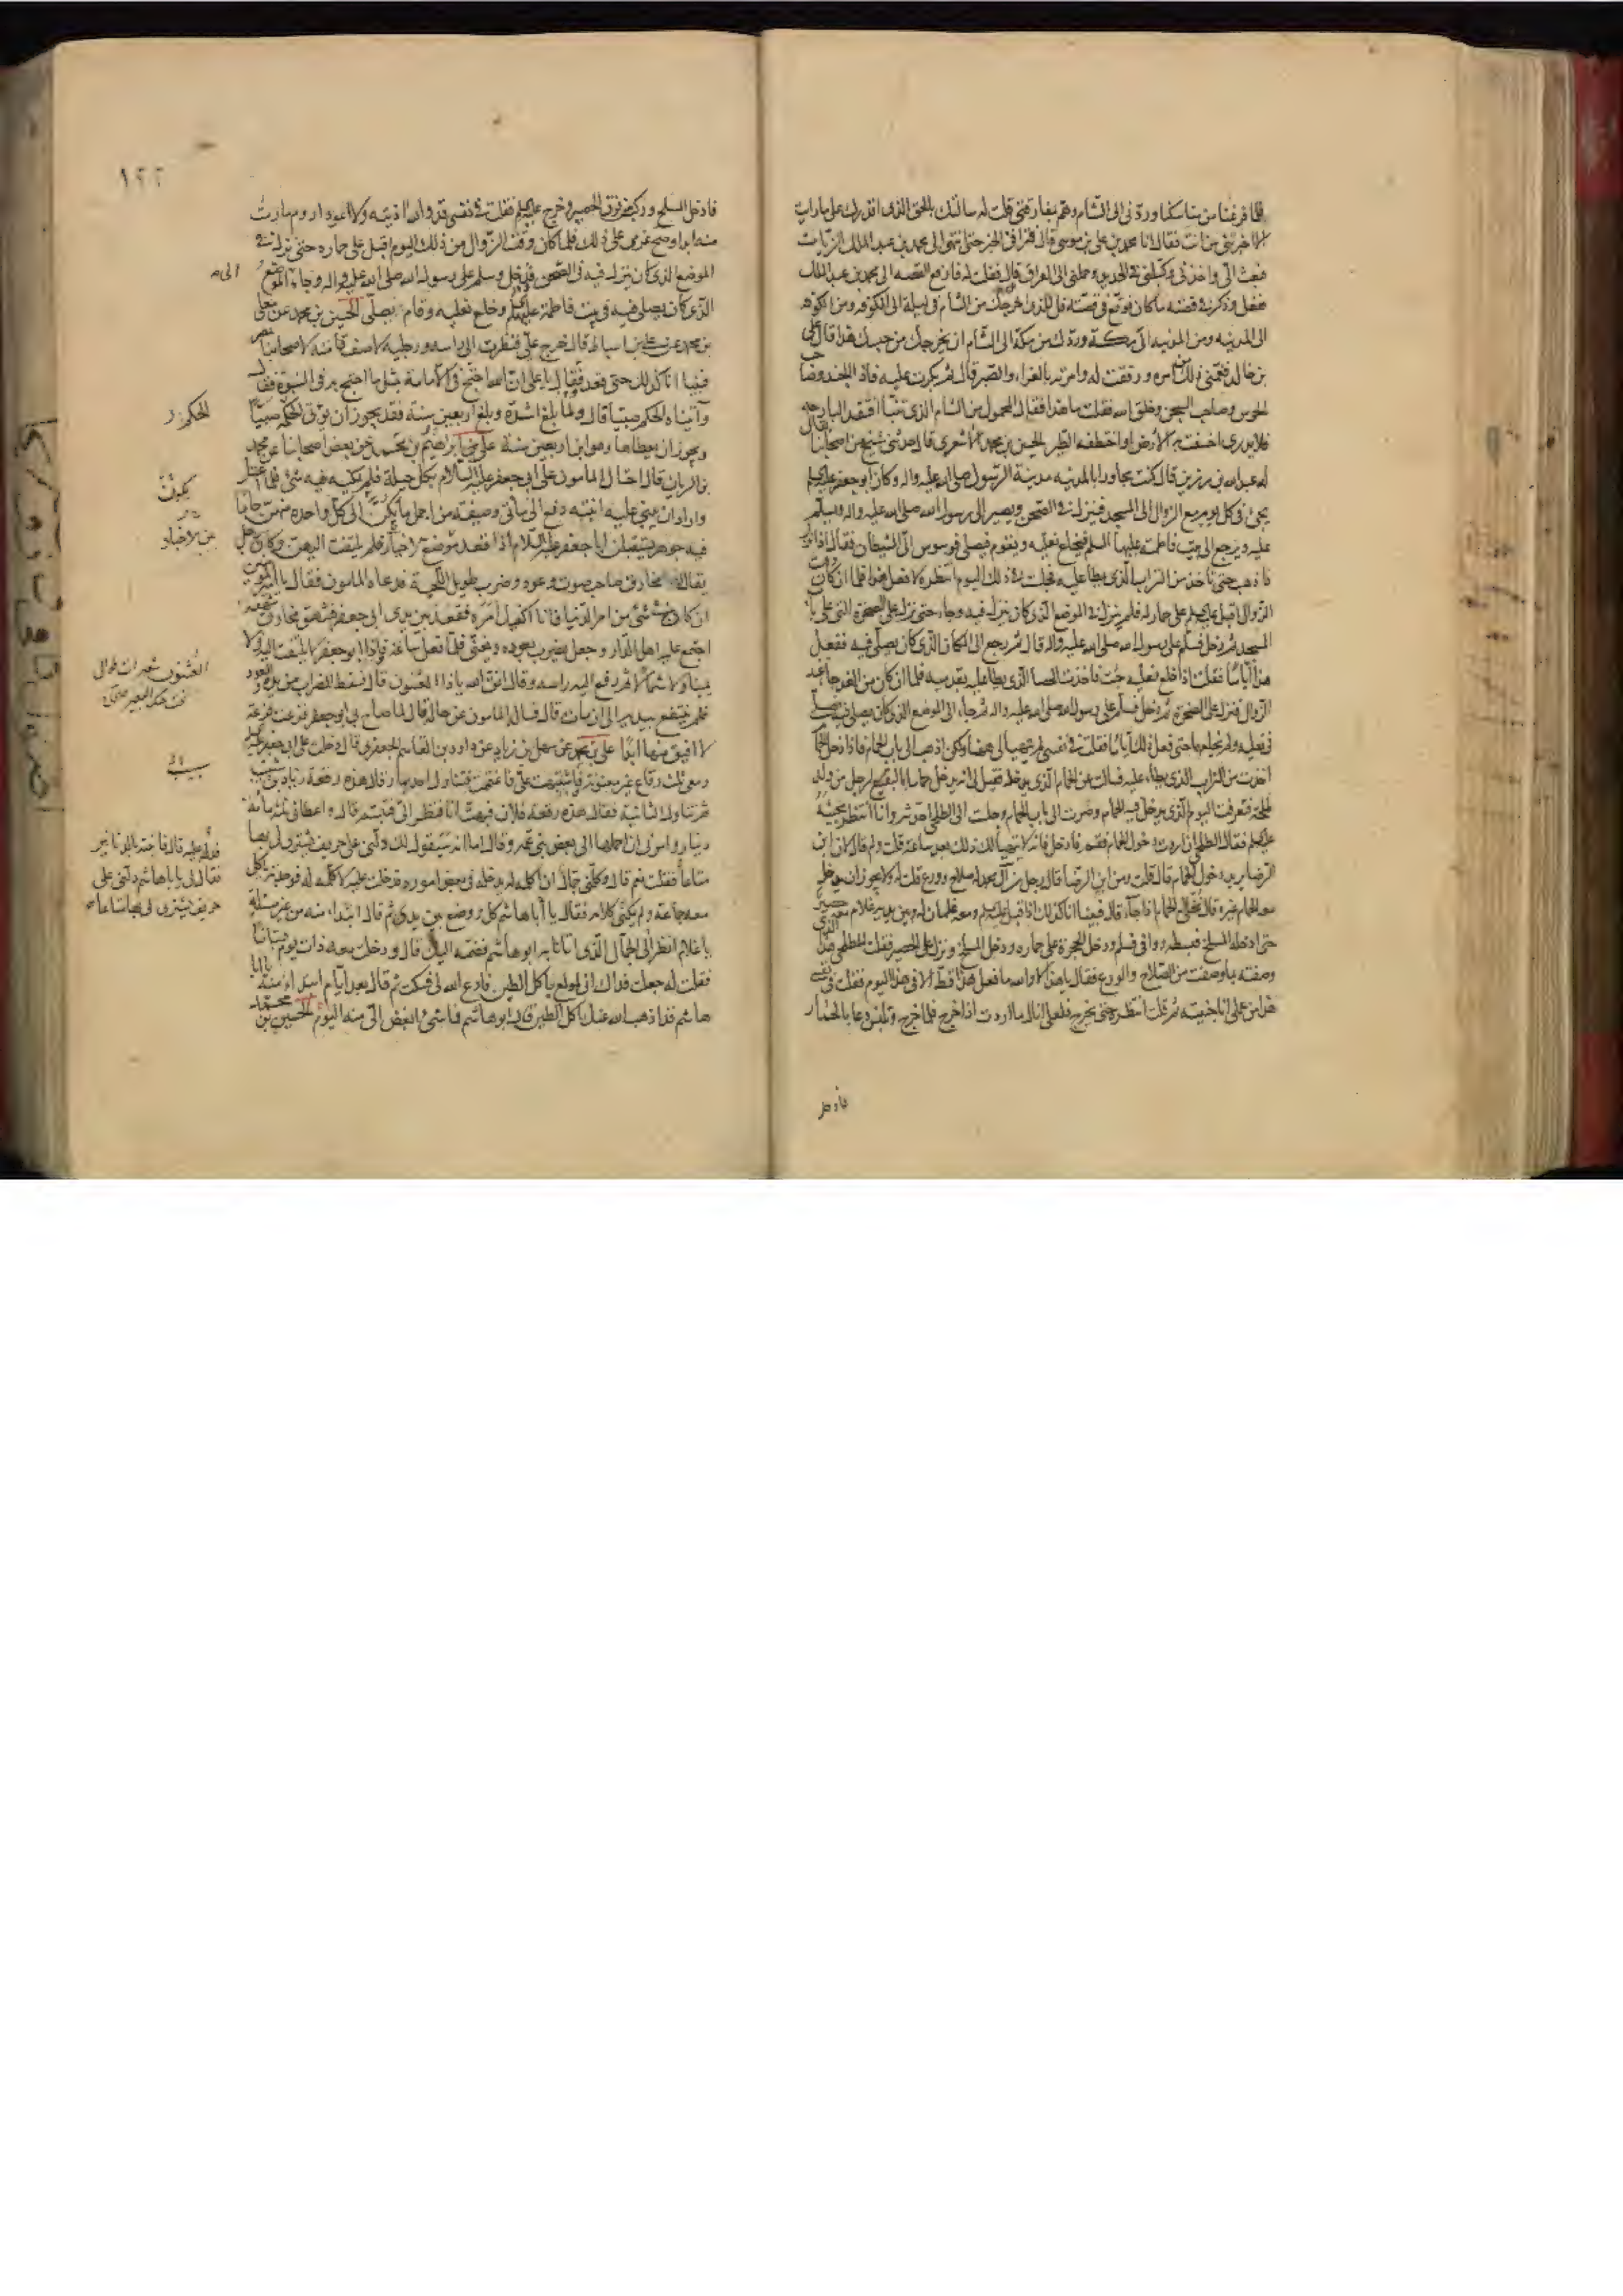 فلما فرغنا من مناسكنا وردّني الى الشام وهمّ بمفارقتي قلت له سالتك بالحق الذي اقدرك على ما رايت
الا اخبرتني من انت فقال انا محمد بن علي بن موسى قال فتراقى الخبر حتى انتهى الى محمد بن عبد الملك الزيات
فبعث الي واخذني وكبّلني في الحديد وحملني الى العراق قال فقلت له فارفع القصه الى محمد بن عبد الملك
ففعل وذكر في قصته ما كان فوقع في قصته قل للذي اخرجك من الشام في ليلة الى الكوفه ومن الكوفه
الى المدينه ومن المدينه الى مكة وردّك من مكة الى الشام ان يخرجك من حبسك هذا قال علي
بن خالد فغمّني ذلك من امره ورققت له وامرته بالعزاء والصبر قال ثم بكرت عليه فاذا الجند وصاحب
الحرس وصاحب السجن وخلق الله فقلت ما هذا فقال المحمول من الشام الذي تنبّا افتقد البارحه
فلا يدرى اخسفت به الارض او اختطفه الطير الحسين بن محمد الاشعري قال حدثني شيخ من اصحابنا يقال
له عبد الله بن رزين قال كنت مجاورا بالمدينه مدينة الرسول صلى الله عليه واله وكان ابو جعفر عليه السلم
يجئ في كل يوم مع الزوال الى المسجد فينزل في الصحن ويصير الى رسول الله صلى الله عليه واله ويسلّم
عليه ويرجع الى بيت فاطمه عليها السلم فيخلع نعليه ويقوم فيصلي فوسوس الى الشيطان فقال اذا نزل
فاذهب حتى تاخذ من التراب الذي يطا عليه فجلست في ذلك اليوم انتظره لافعل هذا فلما ان كان وقت
الزوال اقبل عليه السلم على حمار له فلم ينزل في الموضع الذي كان ينزل فيه وجاء حتى نزل على الصخرة التي على باب
المسجد ثم دخل فسلّم على رسول الله صلى الله عليه واله قال ثم رجع الى المكان الذي كان يصلّي فيه ففعل
هذا ايّامًا فقلت اذا خلع نعليه جئت فاخذت الحصا الذي يطا عليه بقدميه فلما ان كان من الغد جاء عند
الزوال فنزل على الصخرة ثم دخل فسلّم على رسول الله صلى الله عليه واله ثم جاء الى الموضع الذي كان يصلي فيه فصلّى
في نعليه ولم يخلعهما حتى فعل ذلك ايّامًا فقلت في نفسي لم يتهيأ لي ههنا ولكن اذهب الى باب الحمام فاذا دخل الحمام
اخذت من التراب الذي يطاء عليه فسالت عن الحمام الذي يدخله فقيل لي انه يدخل حماما بالبقيع لرجل من ولد
طلحة فتعرفت اليوم الذي يدخل فيه الحمام وصرت الى باب الحمام وجلست الى الطلحي احدثه وانا انتظر مجيئه
عليه السلم فقال الطلحي ان اردت دخول الحمام فقم فادخل فانه لا يتهيأ لك ذلك بعد ساعة قلت ولم قال لان ابن
الرضا يريد دخول الحمام قال قلت ومن ابن الرضا قال رجل من آل محمد له صلاح وورع قلت له ولا يجوز ان يدخل
معه الحمام غيره قال نخلي له الحمام اذا جاء قال فبينا انا كذلك اذ اقبل عليه السلم ومعه غلمان له وبين يديه غلام معه حصير
حتى ادخله المسلخ فبسطه ووافى فسلم ودخل الحجرة على حماره ودخل المسلخ ونزل على الحصير فقلت للطلحي هذا الذي
وصفته بما وصفت من الصلاح والورع فقال يا هذا لا والله ما فعل هذا قط الا في هذا اليوم فقلت في نفسي
هذا من عملي انا جنيته ثم قلت انتظره حتى يخرج فلعلي انال ما اردت اذا خرج فلما خرج وتلبّس دعا بالحمار
فادخل
١٢٢
فادخل المسلخ وركب من فوق الحصير وخرج عليه السلم فقلت في نفسي قد والله اذيته ولا اعود اروم ما رمت
منه ابدا وصح عزمي على ذلك فلما كان وقت الزوال من ذلك اليوم اقبل على حماره حتى نزل في
الموضع الذي كان ينزل فيه في الصحن فدخل وسلم على رسول الله صلى الله عليه واله وجاء الموضع
الى
الذي كان يصلي فيه في بيت فاطمة عليها السلم وخلع نعليه وقام يصلّي الحسين بن محمد عن معلى
بن محمد عن علي بن اسباط قال خرج علي فنظرت الى راسه ورجليه لاصف قامته لاصحابنا بمصر
فبينا انا كذلك حتى قعد فقال يا علي ان الله احتج في الامامة بمثل ما احتج به في النبوة فقال
وآتيناه الحكم صبيّا قال ولما بلغ اشدّه وبلغ اربعين سنة فقد يجوز ان يؤتى الحكمة صبيّا
الحكم
ويجوز ان يعطاها وهو ابن اربعين سنة علي بن ابراهيم بن محمد عن بعض اصحابنا عن محمد
بن الريان قال احتال المامون على ابي جعفر عليه السّلام بكل حيلة فلم يمكنه فيه شئ فلما اعتل
واراد ان يبني عليه ابنته دفع الى مائتي وصيفة من اجمل ما يكنّ الى كل واحدة منهنّ جامًا
يكون
فيه جوهر يستقبلن ابا جعفر عليه السّلام اذا قعد موضع الاخيار فلم يلتفت اليهن وكان رجل
يقال له مخارق صاحب صوت وعود وضرب طويل اللّحية فدعاه المامون فقال يا امير المومنين
ان كان في شئ من امر الدنيا فانا اكفيك امره فقعد بين يدي ابي جعفر فشهق مخارق شهقة
اجتمع عليه اهل الدّار وجعل يضرب بعوده ويغنّي فلمّا فعل ساعة واذا ابو جعفر لا يلتفت اليه ولا
يمينا ولا شمالا ثم رفع اليه راسه وقال اتق الله يا ذا العثنون قال فسقط المضراب من يده والعود
العثنون شعيرات طوال
تحت حنك البعير صحاح
فلم ينتفع بيديه الى ان مات قال فساله المامون عن حاله قال لما صاح بي ابو جعفر فزعت فزعة
لا افيق منها ابدًا علي بن محمد عن سهل بن زياد عن داود بن القاسم الجعفري قال دخلت على ابي جعفر عليه السلم
ومعي ثلث رقاع غير معنونة فاشتبهت عليّ فاغتممت فتناول احديهما وقال هذه رقعة زياد بن شبيب
ثم تناول الثانية فقال هذه رقعة فلان فبهتّ انا فنظر اليّ فتبسّم قال واعطاني ثلثمائة
دينار وامرني ان احملها الى بعض بني عمّه وقال اما انه سيقول لك دلّني على حريف يشتري لي بها
متاعًا فدلّه عليه قال فاتيته بالدنانير
فقال لي يا با هاشم دلّني على
حريف يشتري لي بها متاعا
فقلت نعم قال وكلّمني جمّال ان اكلّمه له يدخله في بعض اموره فدخلت عليه لاكلّمه له فوجدته ياكل
معه جماعة ولم يمكني كلامه فقال يا أبا هاشم كل ووضع بين يدي ثم قال ابتداء منه من غير مسئلة
يا غلام انظر الى الجمّال الّذي اتانا به ابو هاشم فضمّه اليك قال ودخلت معه ذات يوم بستانًا
فقلت له جعلت فداك اني لمولع باكل الطين فادع الله لي فسكت ثم قال بعد ايّام ابتداء منه يا با
هاشم قد اذهب الله عنك اكل الطين قال ابو هاشم فما شئ ابغض اليّ منه اليوم الحسين بن محمد